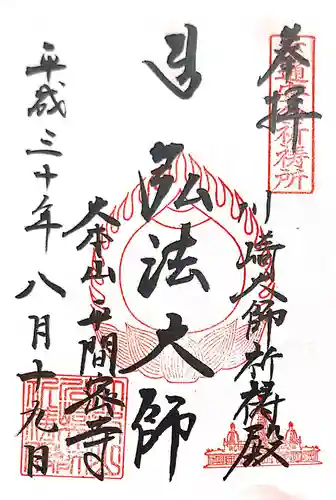 奉拝
川崎大師祈祷殿
弘法大師
大本山平間寺
平成三十年八月十九日